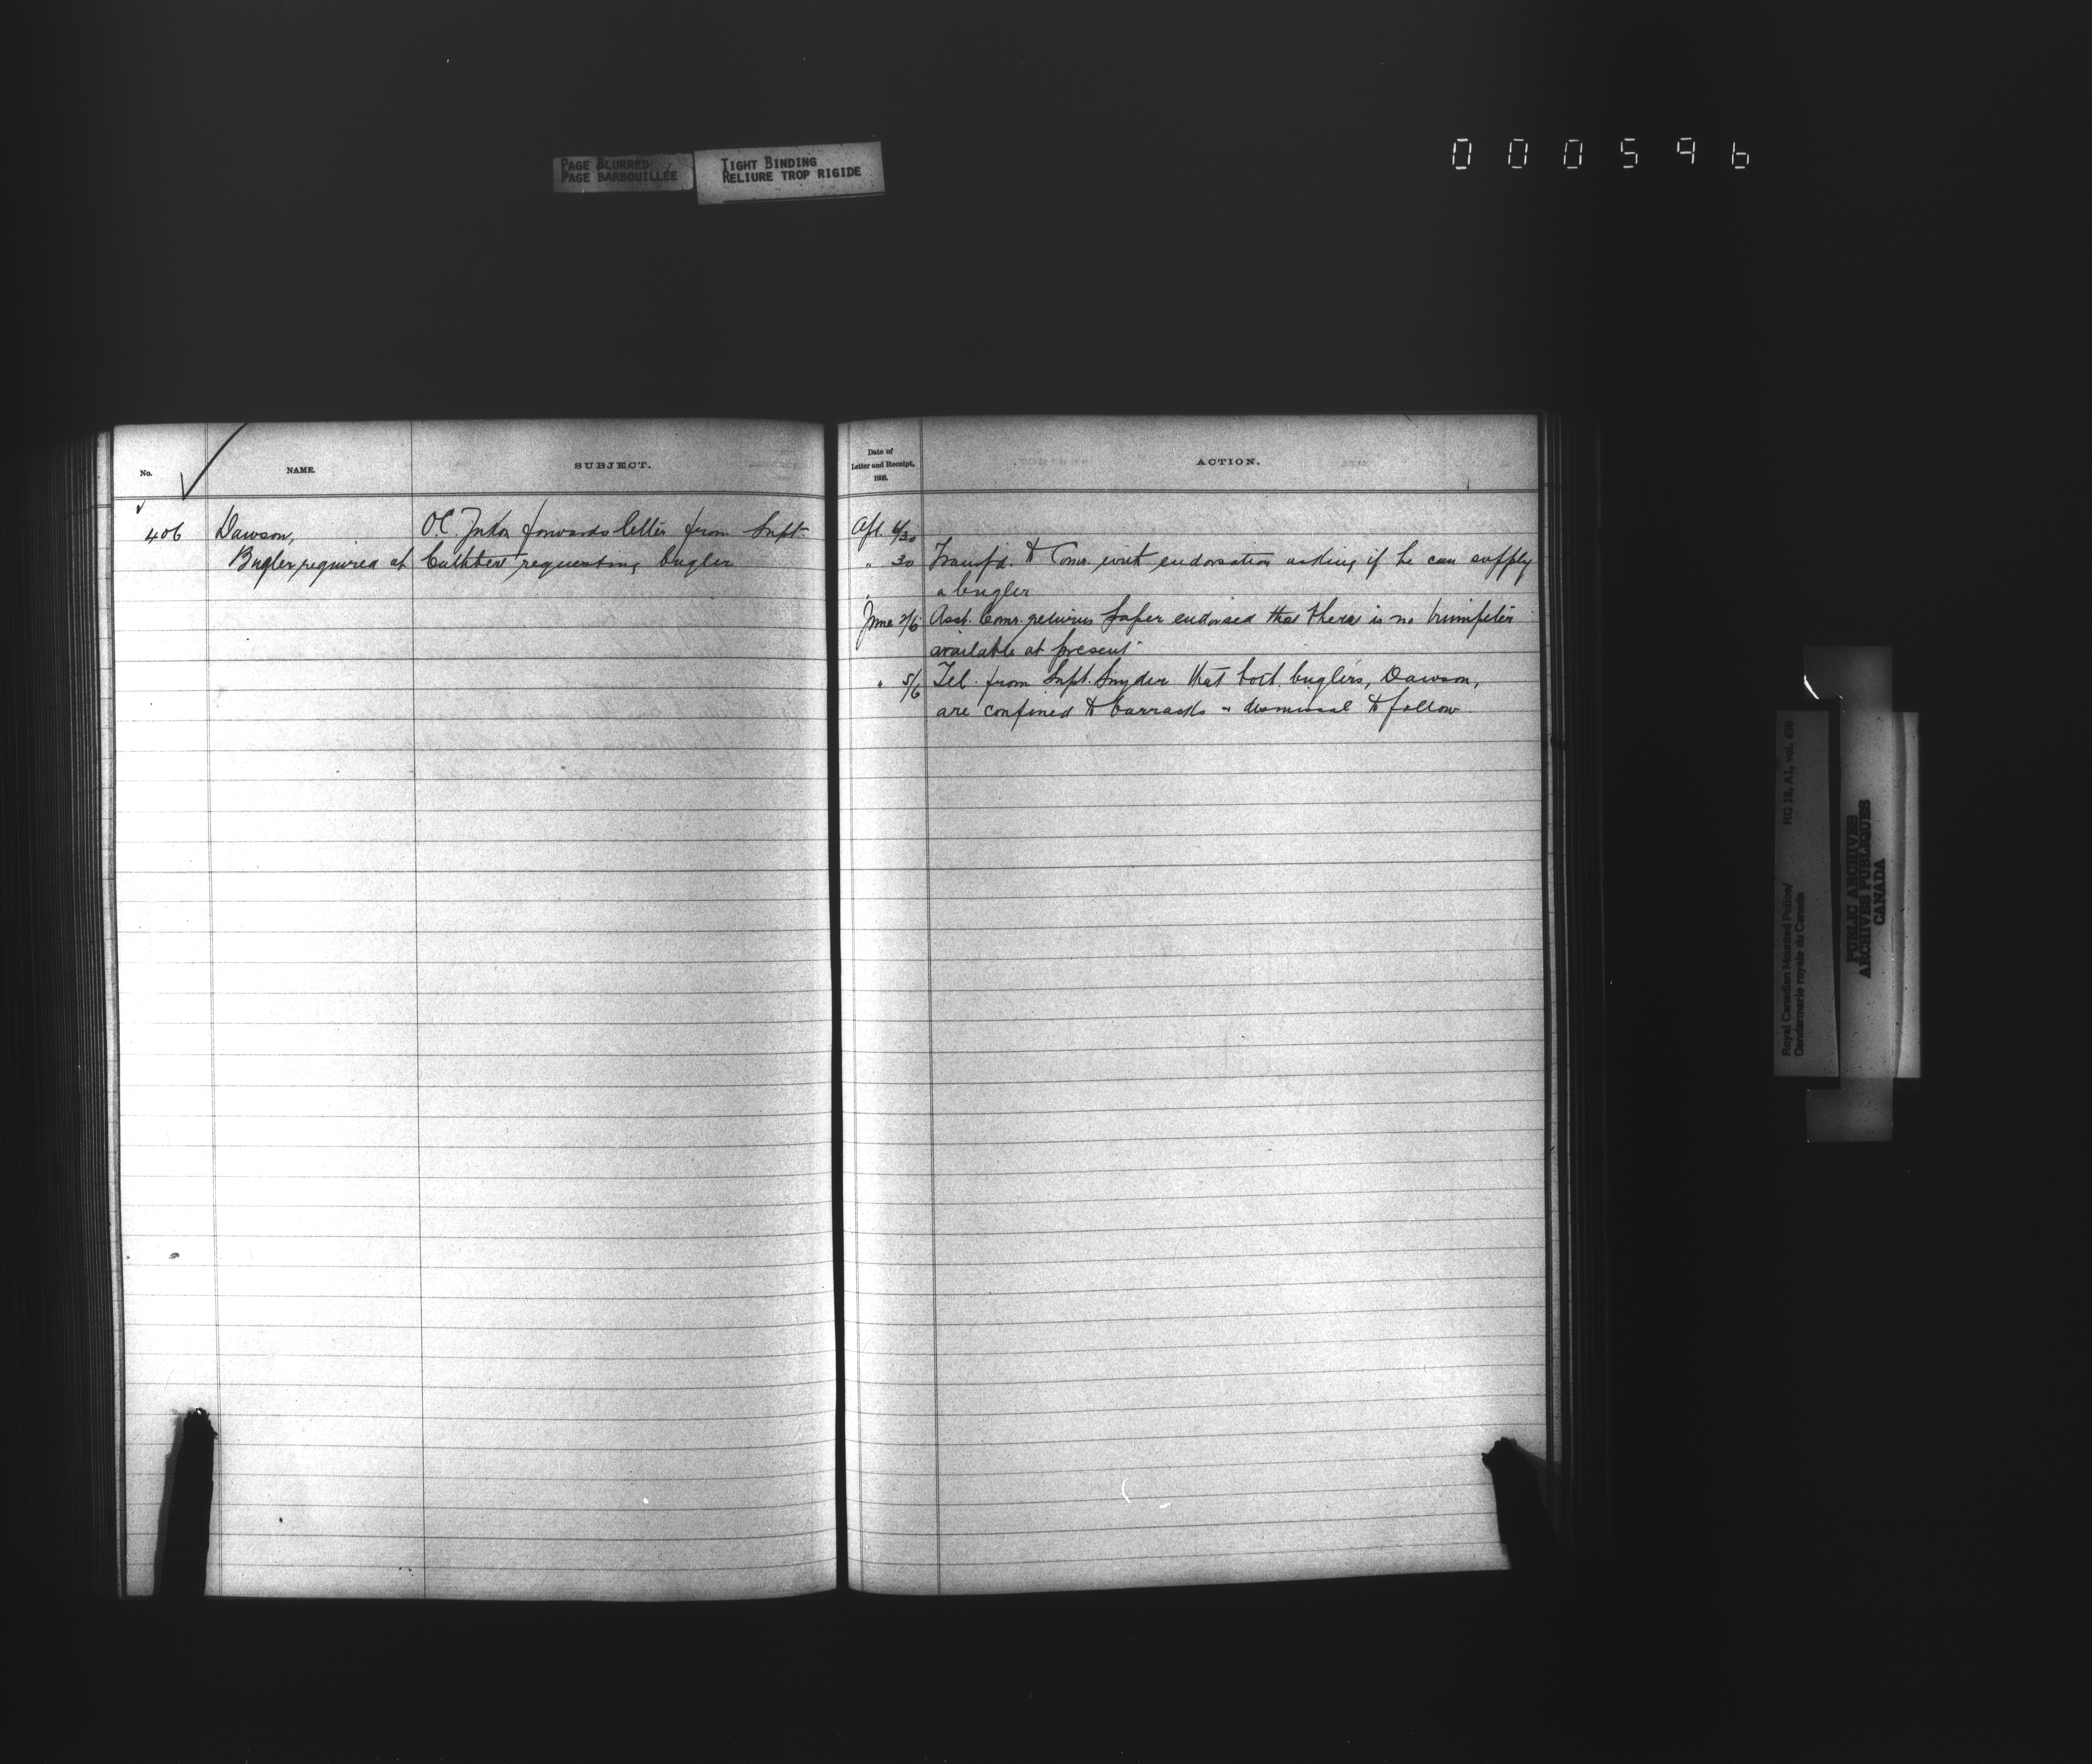 PAGE BLURRED
PAGE BARBOUILLÉE
TIGHT BINDING
RELIURE TROP RIGIDE
000596
No.
NAME.
SUBJECT.
406
Dawson,
Bugler required at
O.C. Yukon forwards letter from Supt.
Cuthbert requesting bugler
Date of
Letter and Receipt,
1906.
ACTION.
Apl. 6/30
" 30 Transfd. to Comr. with endorsation asking if he can supply
a bugler
June 2/6 Asst. Comr. returns paper endorsed that there is no trumpeter
available at present
" 5/6 Tel. from Supt. Snyder that both buglers, Dawson,
are confined to barracks - dismissal to follow.
Royal Canadian Mounted Police/
Gendarmerie royale du Canada
RG 18, A1, vol.
PUBLIC ARCHIVES
ARCHIVES PUBLIQUES
CANADA